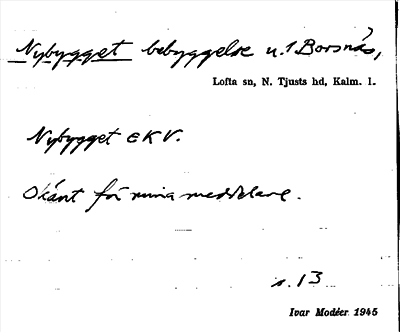 Nybygget bebyggelse u. 1 Borsnäs,
Lofta sn, N. Tjusts hd, Kalm. l.
Nybygget EKV.
Okänt för mina meddelare.
s. 13
Ivar Modéer 1945